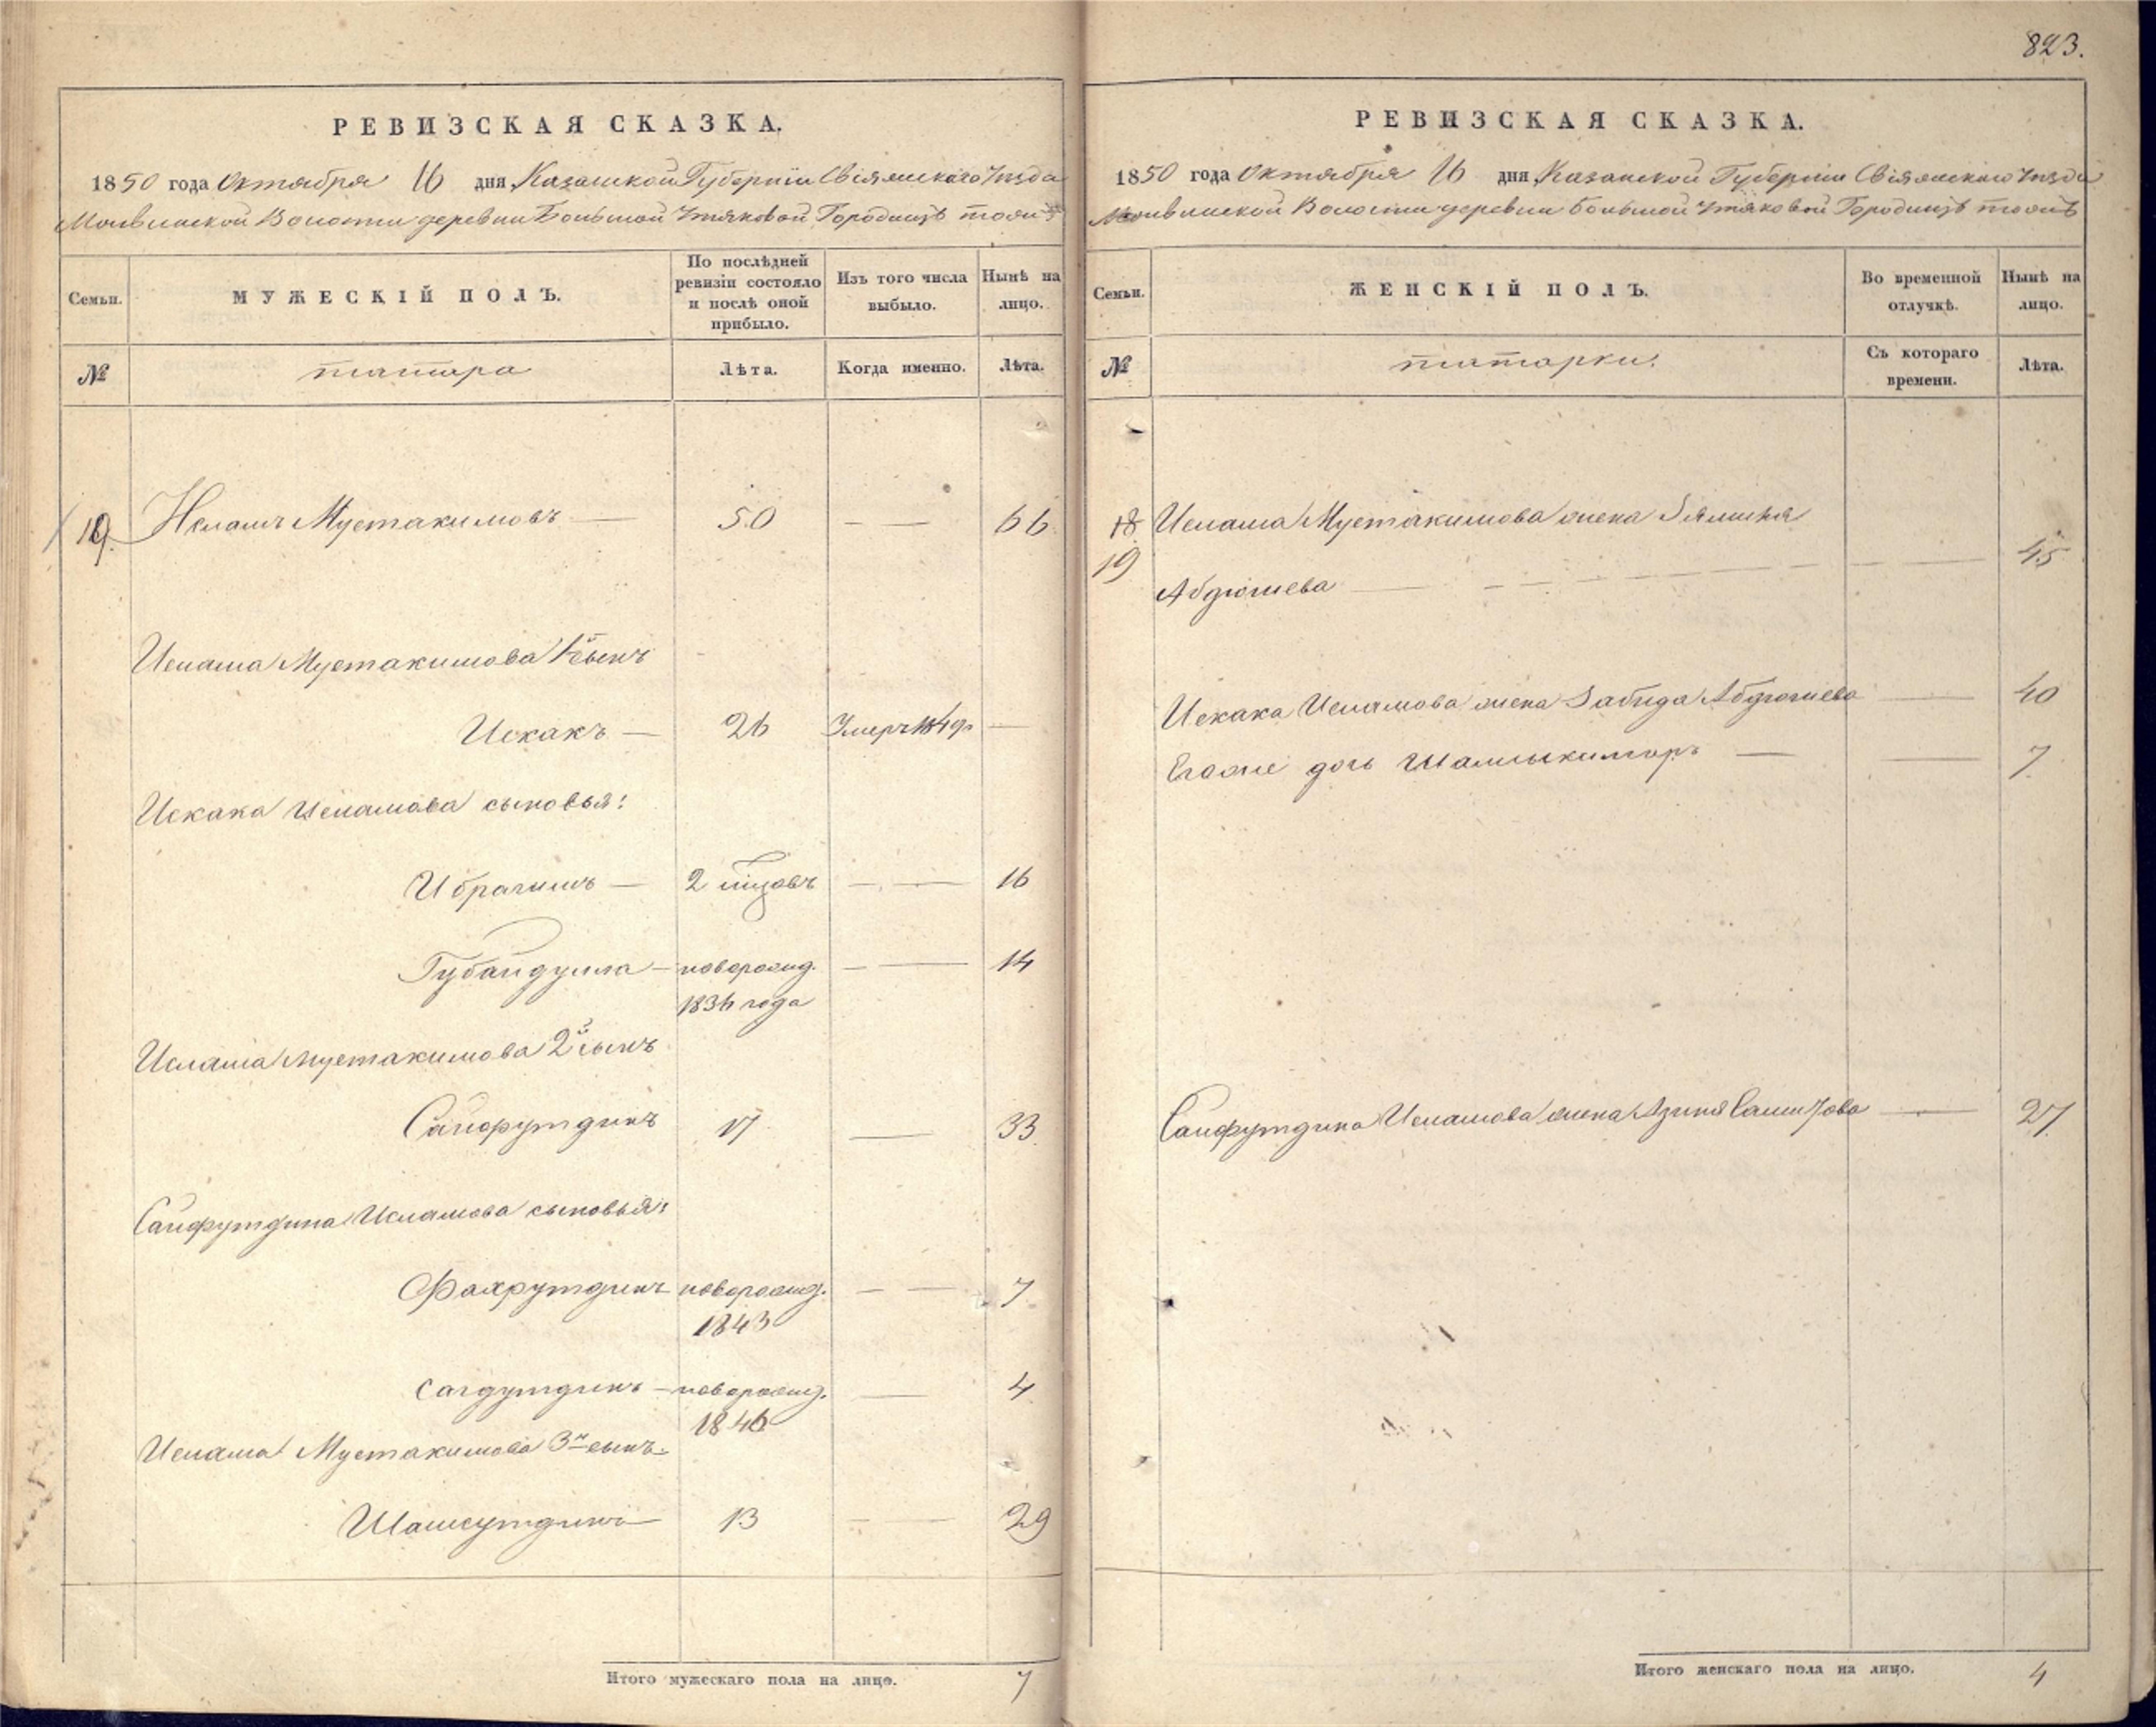 823.
РЕВИЗСКАЯ СКАЗКА.
1850 года Октября 16 дня Казанской Губернiи Свiяжскаго Уѣзда
Молвинской Волости деревни Большой Утяковой Городищѣ тожъ
Семьи.
МУЖЕСКIЙ ПОЛЪ.
По послѣдней ревизiи состояло и послѣ оной прибыло.
Изъ того числа выбыло.
Нынѣ на лицо.
№
татара
Лѣта.
Когда именно.
Лѣта.
19. Исламъ Мустакимовъ — 50 — — 66
Ислама Мустакимова 1й сынъ
Искакъ — 26 Умеръ —
Искака Исламова сыновья:
Ибрагимъ — 2 — — 16
Губайдулла — новорожд. — — 14
1836 года
Ислама Мустакимова 2й сынъ
Сайфутдинъ 17 — 33
Сайфутдина Исламова сыновья:
Фахрутдинъ новорожд. — — 7
1843
Сагдутдинъ — новорожд. — 4
1846
Ислама Мустакимова 3й сынъ
Шамсутдинъ 13 — — 29
Итого мужескаго пола на лицо. 7
РЕВИЗСКАЯ СКАЗКА.
1850 года Октября 16 дня Казанской Губернiи Свiяжскаго Уѣзда
Молвинской Волости деревни Большой Утяковой Городищѣ тожъ
Семьи.
ЖЕНСКIЙ ПОЛЪ.
Во временной отлучкѣ.
Нынѣ на лицо.
№
татарки.
Съ котораго времени.
Лѣта.
18 Ислама Мустакимова жена
19
Абдюшева — — — 45
Искака Исламова жена Забида Абдюшева — 40
Егоже дочь — — 7
Сайфутдина Исламова жена — 27
Итого женскаго пола на лицо. 4